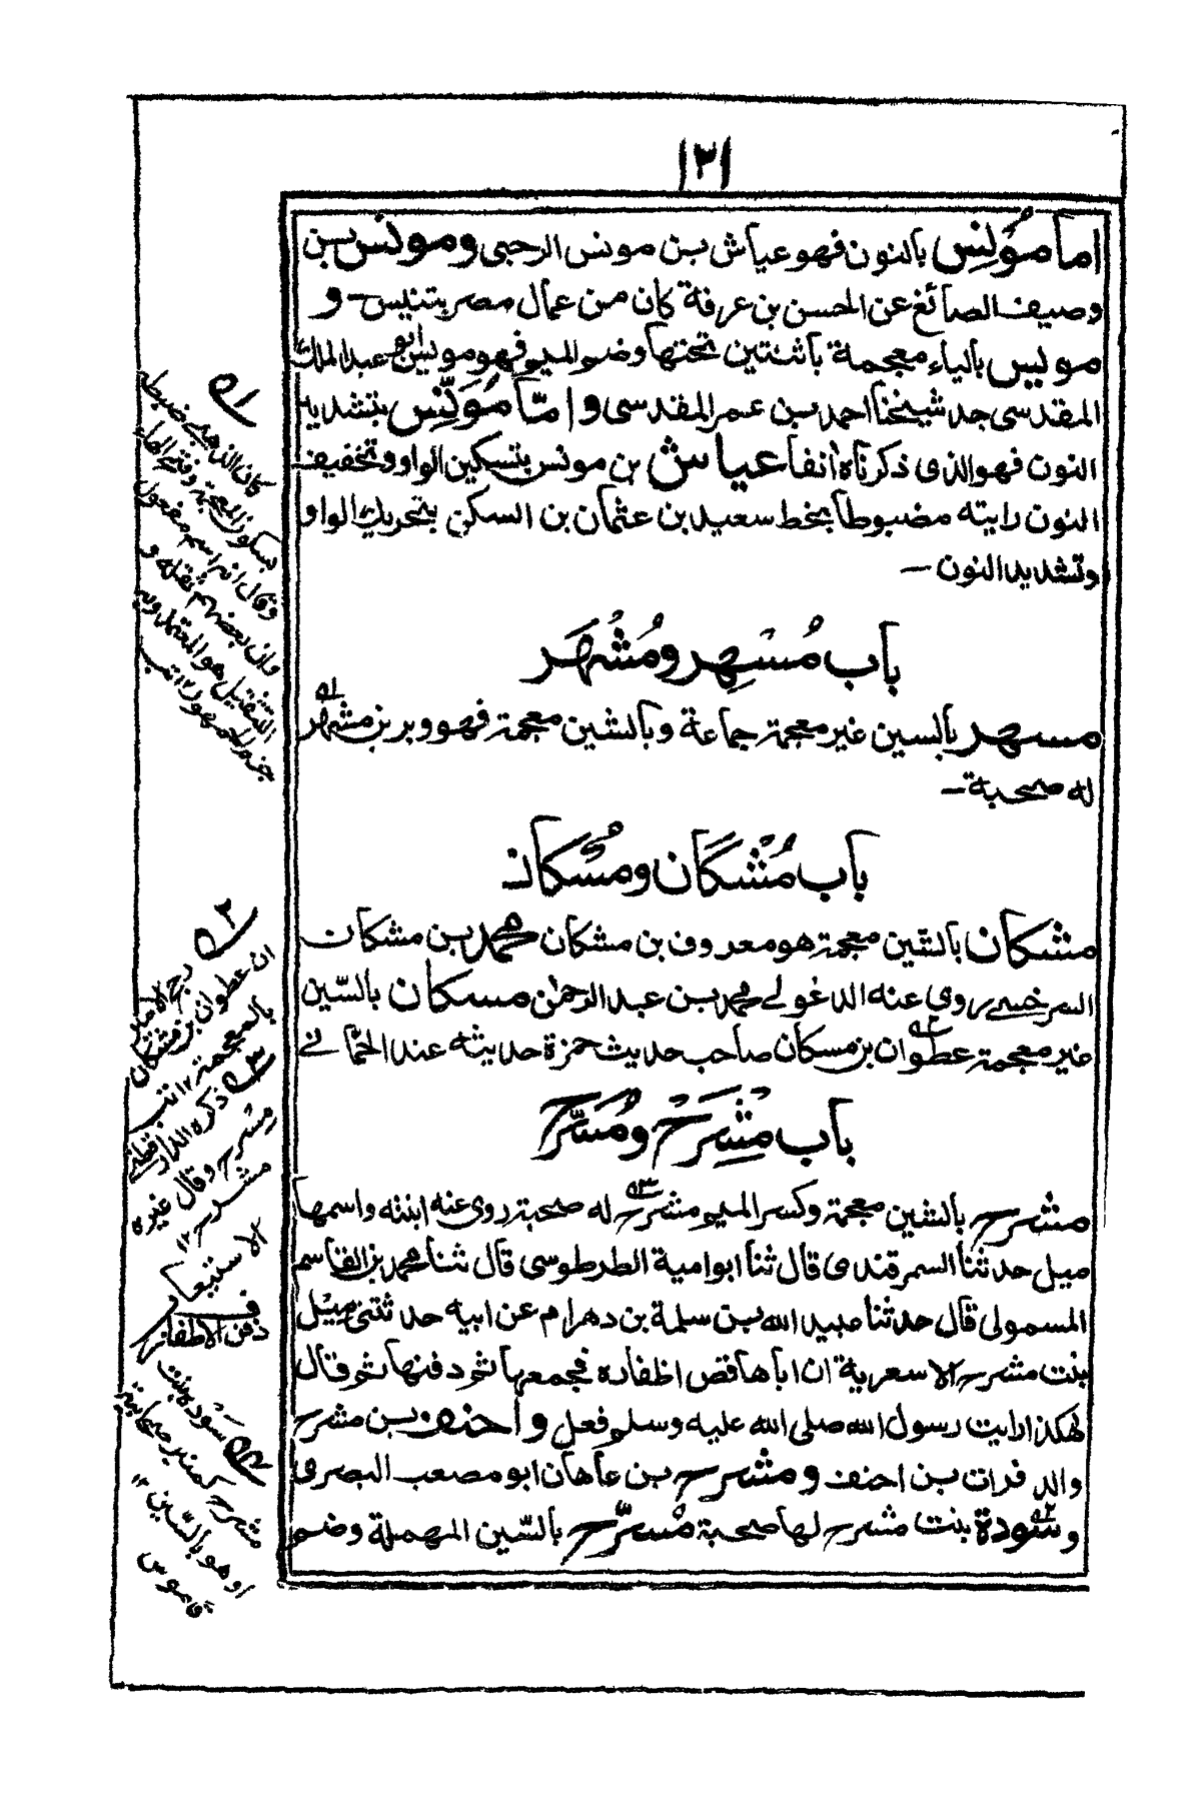 ١٣١
اما مُؤنِس بالنون فهو عياش بن مونس الرحبى ومونس بن
وصيف الصائغ عن الحسن بن عرفة كان من عمال مصر بتنيس - و
مويس بالياء معجمة باثنتين تحتها وضم الميم فهو مويس ابو عبد الملك
المقدسى جد شيخنا احمد بن عمر المقدسى و امّا مُوَنِّس بتشديد
النون فهو الذى ذكرناه انفا عياش بن مونس بتسكين الواو وتخفيف
النون رايته مضبوطا بخط سعيد بن عثمان بن السكن بتحريك الواو
وتشديد النون -
باب مُسْهِر ومُشْهَر
مسهر بالسين غير معجمة جماعة وبالشين معجمة فهو وبر بن مشهر
له صحبة -
باب مُشْكَان ومُسْكان
مشكان بالشين معجمة هو معروف بن مشكان محمد بن مشكان
السرخسى روى عنه الدغولى محمد بن عبد الرحمن مسكان بالسّين
غير معجمة عطوان بن مسكان صاحب حديث حمزة حديثه عند الحمّانى
باب مِشْرَح ومُسَرِّح
مشرح بالشين معجمة وكسر الميم مشرح له صحبة روى عنه ابنته واسمها
ميل حدثنا السمرقندى قال ثنا ابوامية الطرطوسى قال ثنا محمد بن القاسم
المسمولى قال حدثنا عبيد الله بن سلمة بن دهرام عن ابيه حدثتنى ميل
بنت مشرح الاسعرية ان اباها قص اظفاره فجمعها ثم دفنها ثم قال
هكذا رايت رسول الله صلى الله عليه وسلم فعل و احنف بن مشرح
والد فرات بن احنف و مشرح بن عاهان ابو مصعب البصرى
و سودة بنت مشرح لها صحبة مُسرّح بالسّين المهملة وضم
١
كان الذهبى ضبطه
بسكون المعجمة وفتح الهاء
وقال انه اسم مفعول
وان بعضهم ثقله و
التثقيل هو المعتمل وبه
جزم الجمهور ١٢ تب
٢
رجح الامير
ان عطوان بن مشكان
بالمعجمة ١٢ تب
٣
ذكره الدارقطنى
مسرح وقال غيره
مشرح ١٢
الاستيعاب
ف
دفن الاظفار
٤
سودة بنت
مشرح كمنبر صحابية
او هو بالسّين ١٢
قاموس